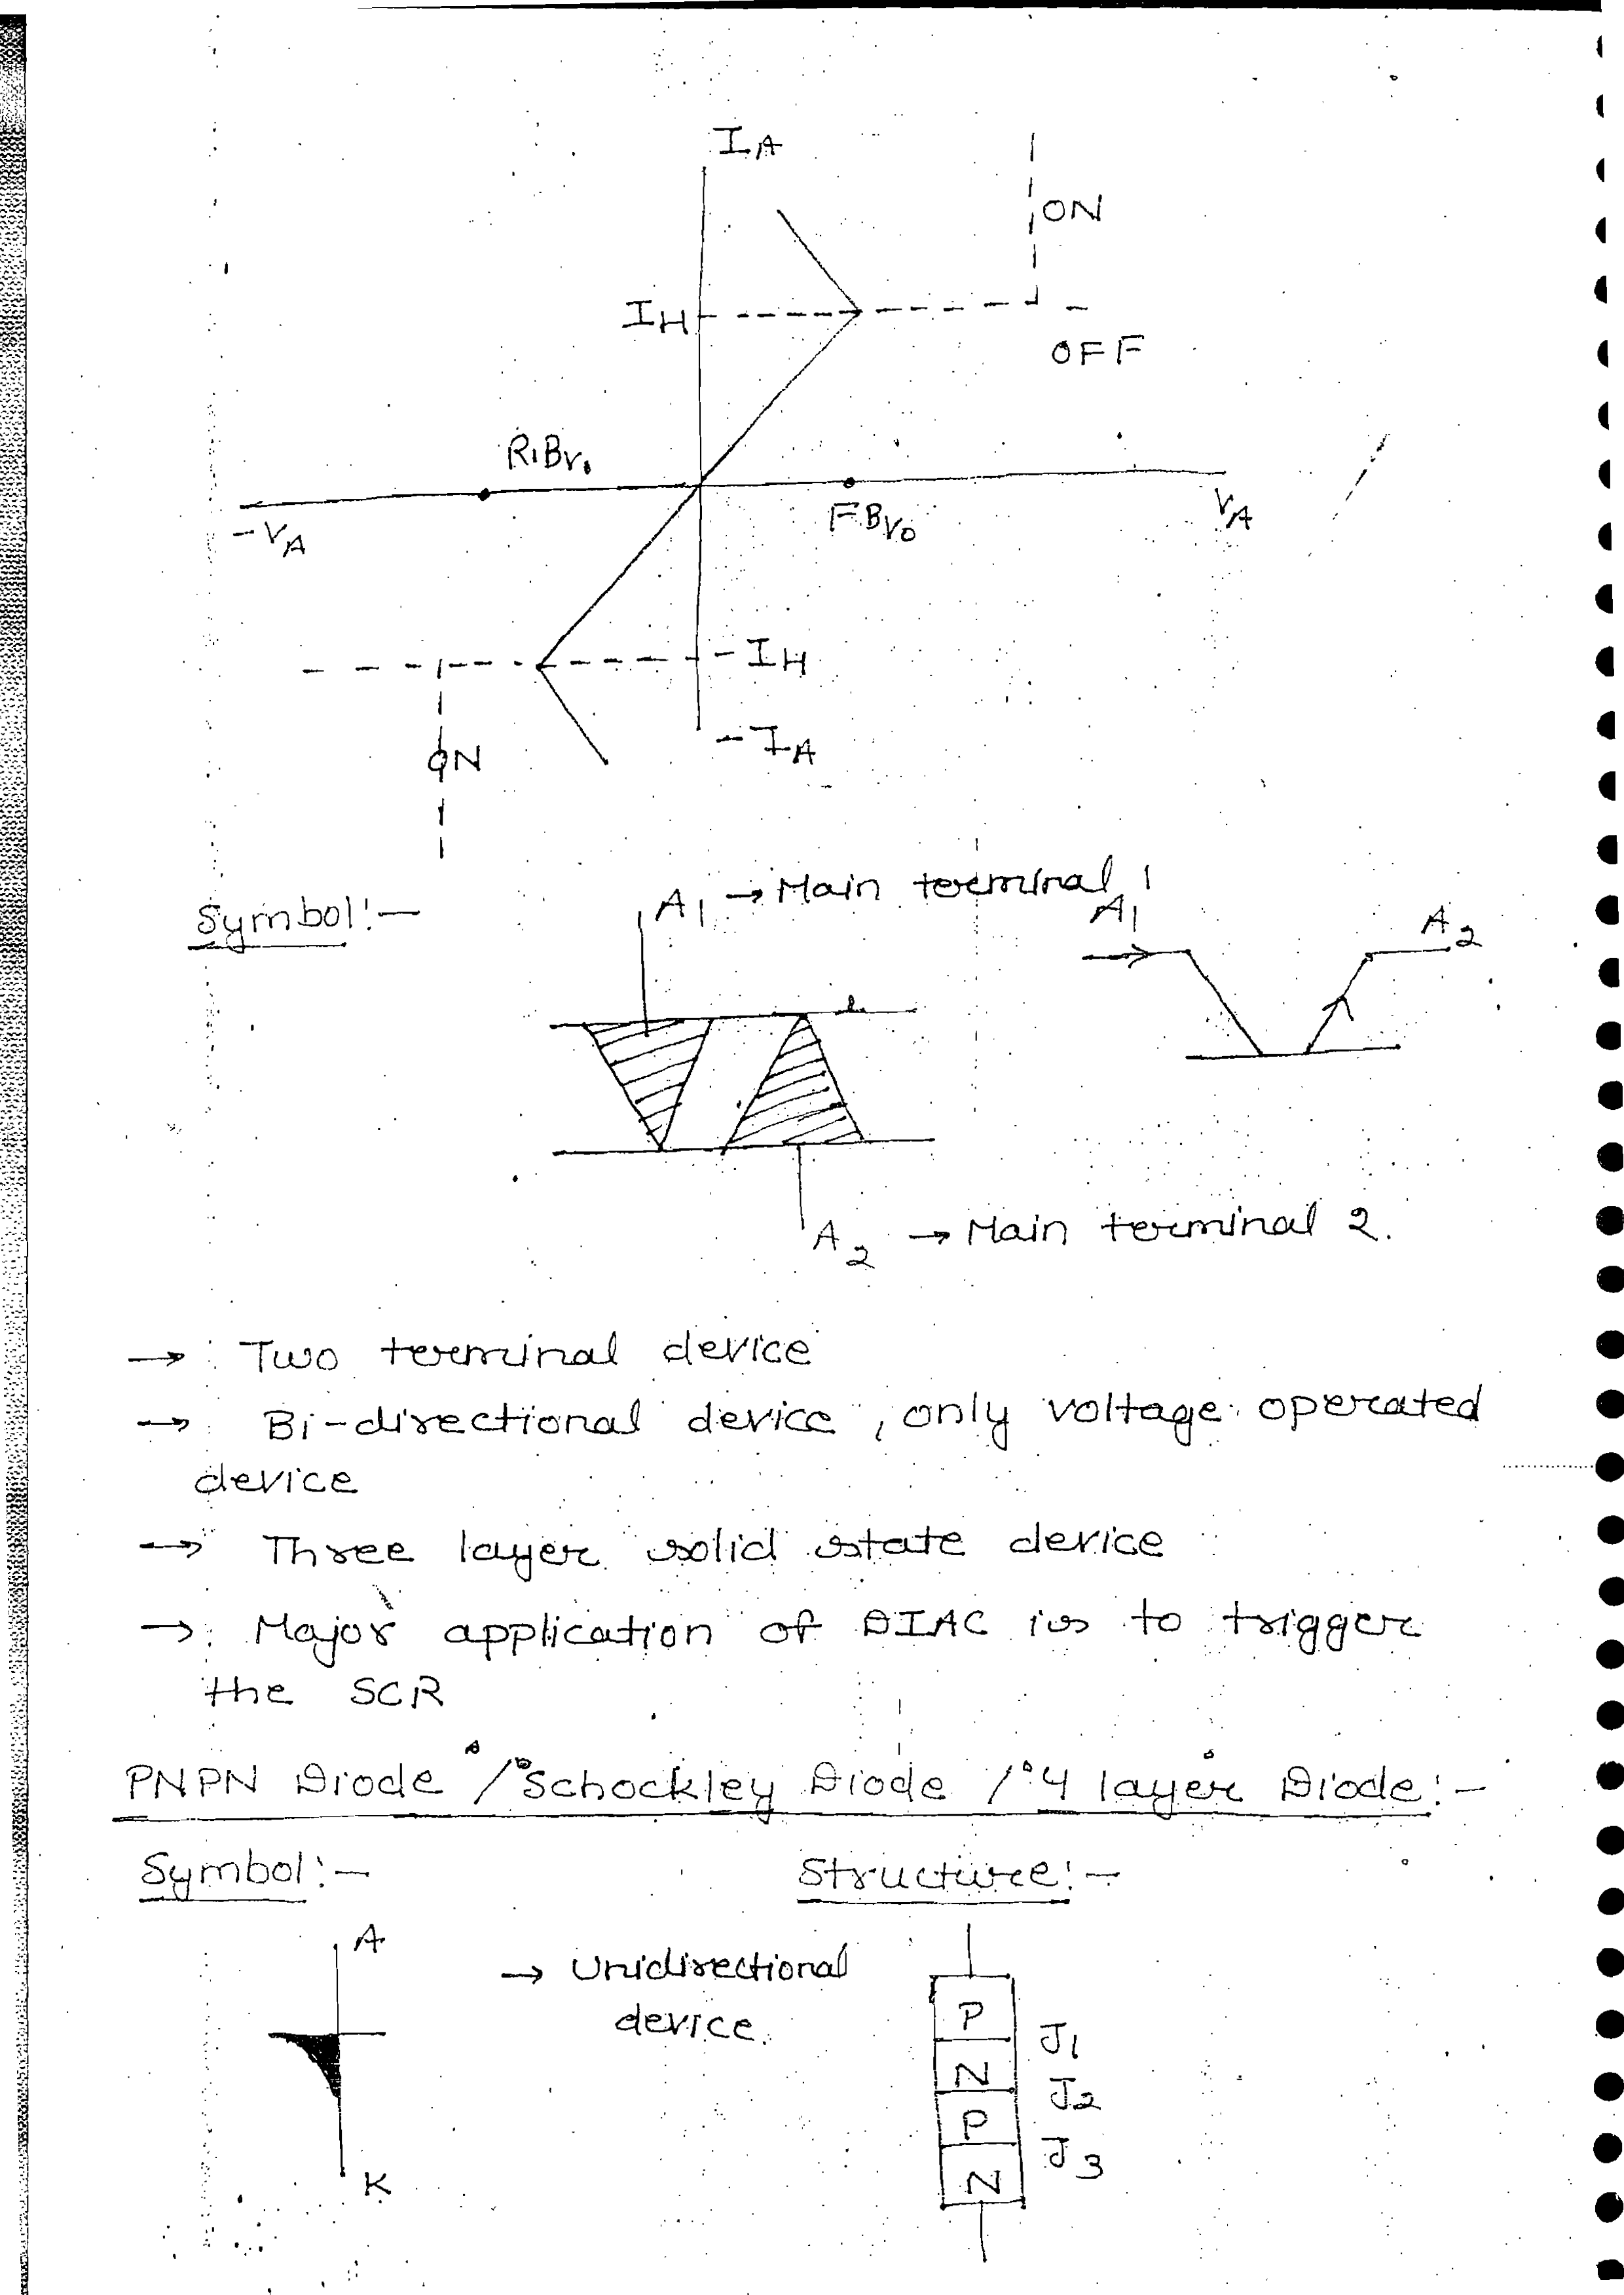 I_A
ON
I_H
OFF
RBV₀
-V_A
FBV₀
V_A
-I_H
-I_A
ON
Symbol:-
A₁ → Main terminal 1
A₁
A₂
A₂ → Main terminal 2.
→ Two terminal device
→ Bi-directional device, only voltage operated
device
→ Three layer solid state device
→ Major application of DIAC is to trigger
the SCR
PNPN Diode / Schockley Diode / 4 layer Diode:-
Symbol:-
Structure:-
A
→ Unidirectional
device.
K
P
J₁
N
J₂
P
J₃
N